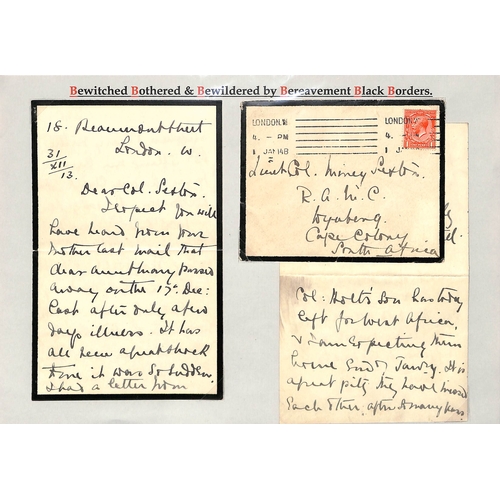 Bewitched Bothered & Bewildered by Bereavement Black Borders.
18. Beaumont Street
London. W.
31
XII
13.
Dear Col. Sexton.
I expect you will
have heard from your
Mother last mail that
dear Aunt Mary passed
away on the 17th Dec:
last after only a few
days illness. It has
all been a great shock
time it was so sudden
I had a letter from
LONDON. W.
4. - PM
1 JAN 14B
LONDON.
4. -
1 JA
Lieut Col. Money Sexton.
R. A. M. C.
Wynberg.
Cape Colony
South Africa
Col: Holt's Son has today
left for West Africa,
& I am expecting them
home end of Jan:y. It is
a great pity they have missed
Each other, after so many years